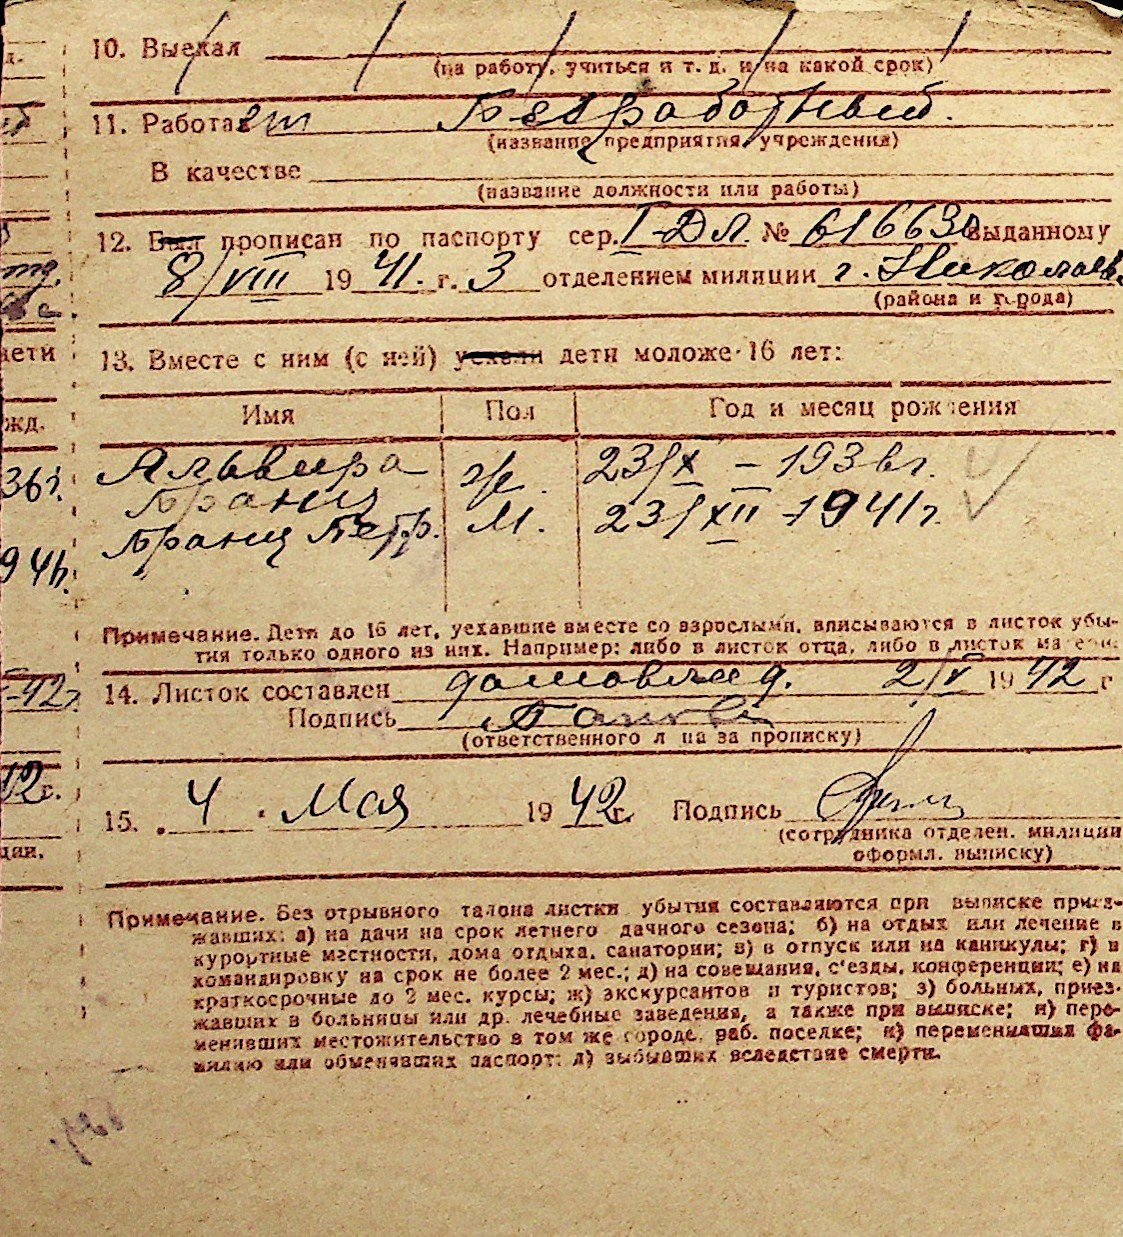 10. Выехал
(на работу, учиться и т. д. и на какой срок)
11. Работает Безработный.
(название предприятия, учреждения)
В качестве
(название должности или работы)
12. Был прописан по паспорту сер. I-ДЛ. № 616630 выданному
8/VIII 1941. г. 3 отделением милиции г. Николаев.
(района и города)
13. Вместе с ним (с ней) уехали дети моложе 16 лет:
Имя Пол Год и месяц рождения
Альвира ж. 23/X – 1936г.
Франц
Франц Петр. М. 23/XII - 1941г.
Примечание. Дети до 16 лет, уехавшие вместе со взрослыми, вписываются в листок убы-
тия только одного из них. Например: либо в листок отца, либо в листок матери.
14. Листок составлен 2/V 1942 г
Подпись
(ответственного лица за прописку)
15. 4. Мая 1942 г. Подпись
(сотрудника отделен. милиции
оформл. выписку)
Примечание. Без отрывного талона листки убытия составляются при выписке приез-
жавших: а) на дачи на срок летнего дачного сезона; б) на отдых или лечение в
курортные местности, дома отдыха, санатории; в) в отпуск или на каникулы; г) в
командировку на срок не более 2 мес.; д) на совещания, с'езды, конференции; е) на
краткосрочные до 2 мес. курсы; ж) экскурсантов и туристов; з) больных, приез-
жавших в больницы или др. лечебные заведения, а также при выписке; и) пере-
менивших местожительство в том же городе, раб. поселке; к) переменивших фа-
милию или обменявших паспорт; л) выбывших вследствие смерти.